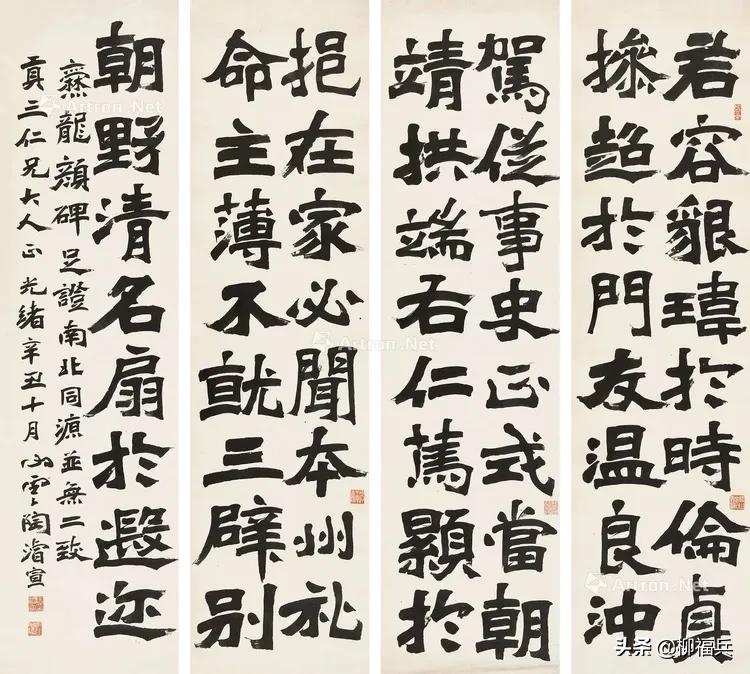 若容貌瑋於時倫貞
操超於門友温良沖
駕從事史正式當朝
靖拱端右仁篤顯於
挹在家必聞本州礼
命主薄不就三辟别
朝野清名扇於遐迩
爨龍顏碑足證南北同源並無二致
貢三仁兄大人正 光緒辛丑十月心雲陶濬宣
Artron.Net
Artron.Net
Artron.Net
头条 @柳福兵